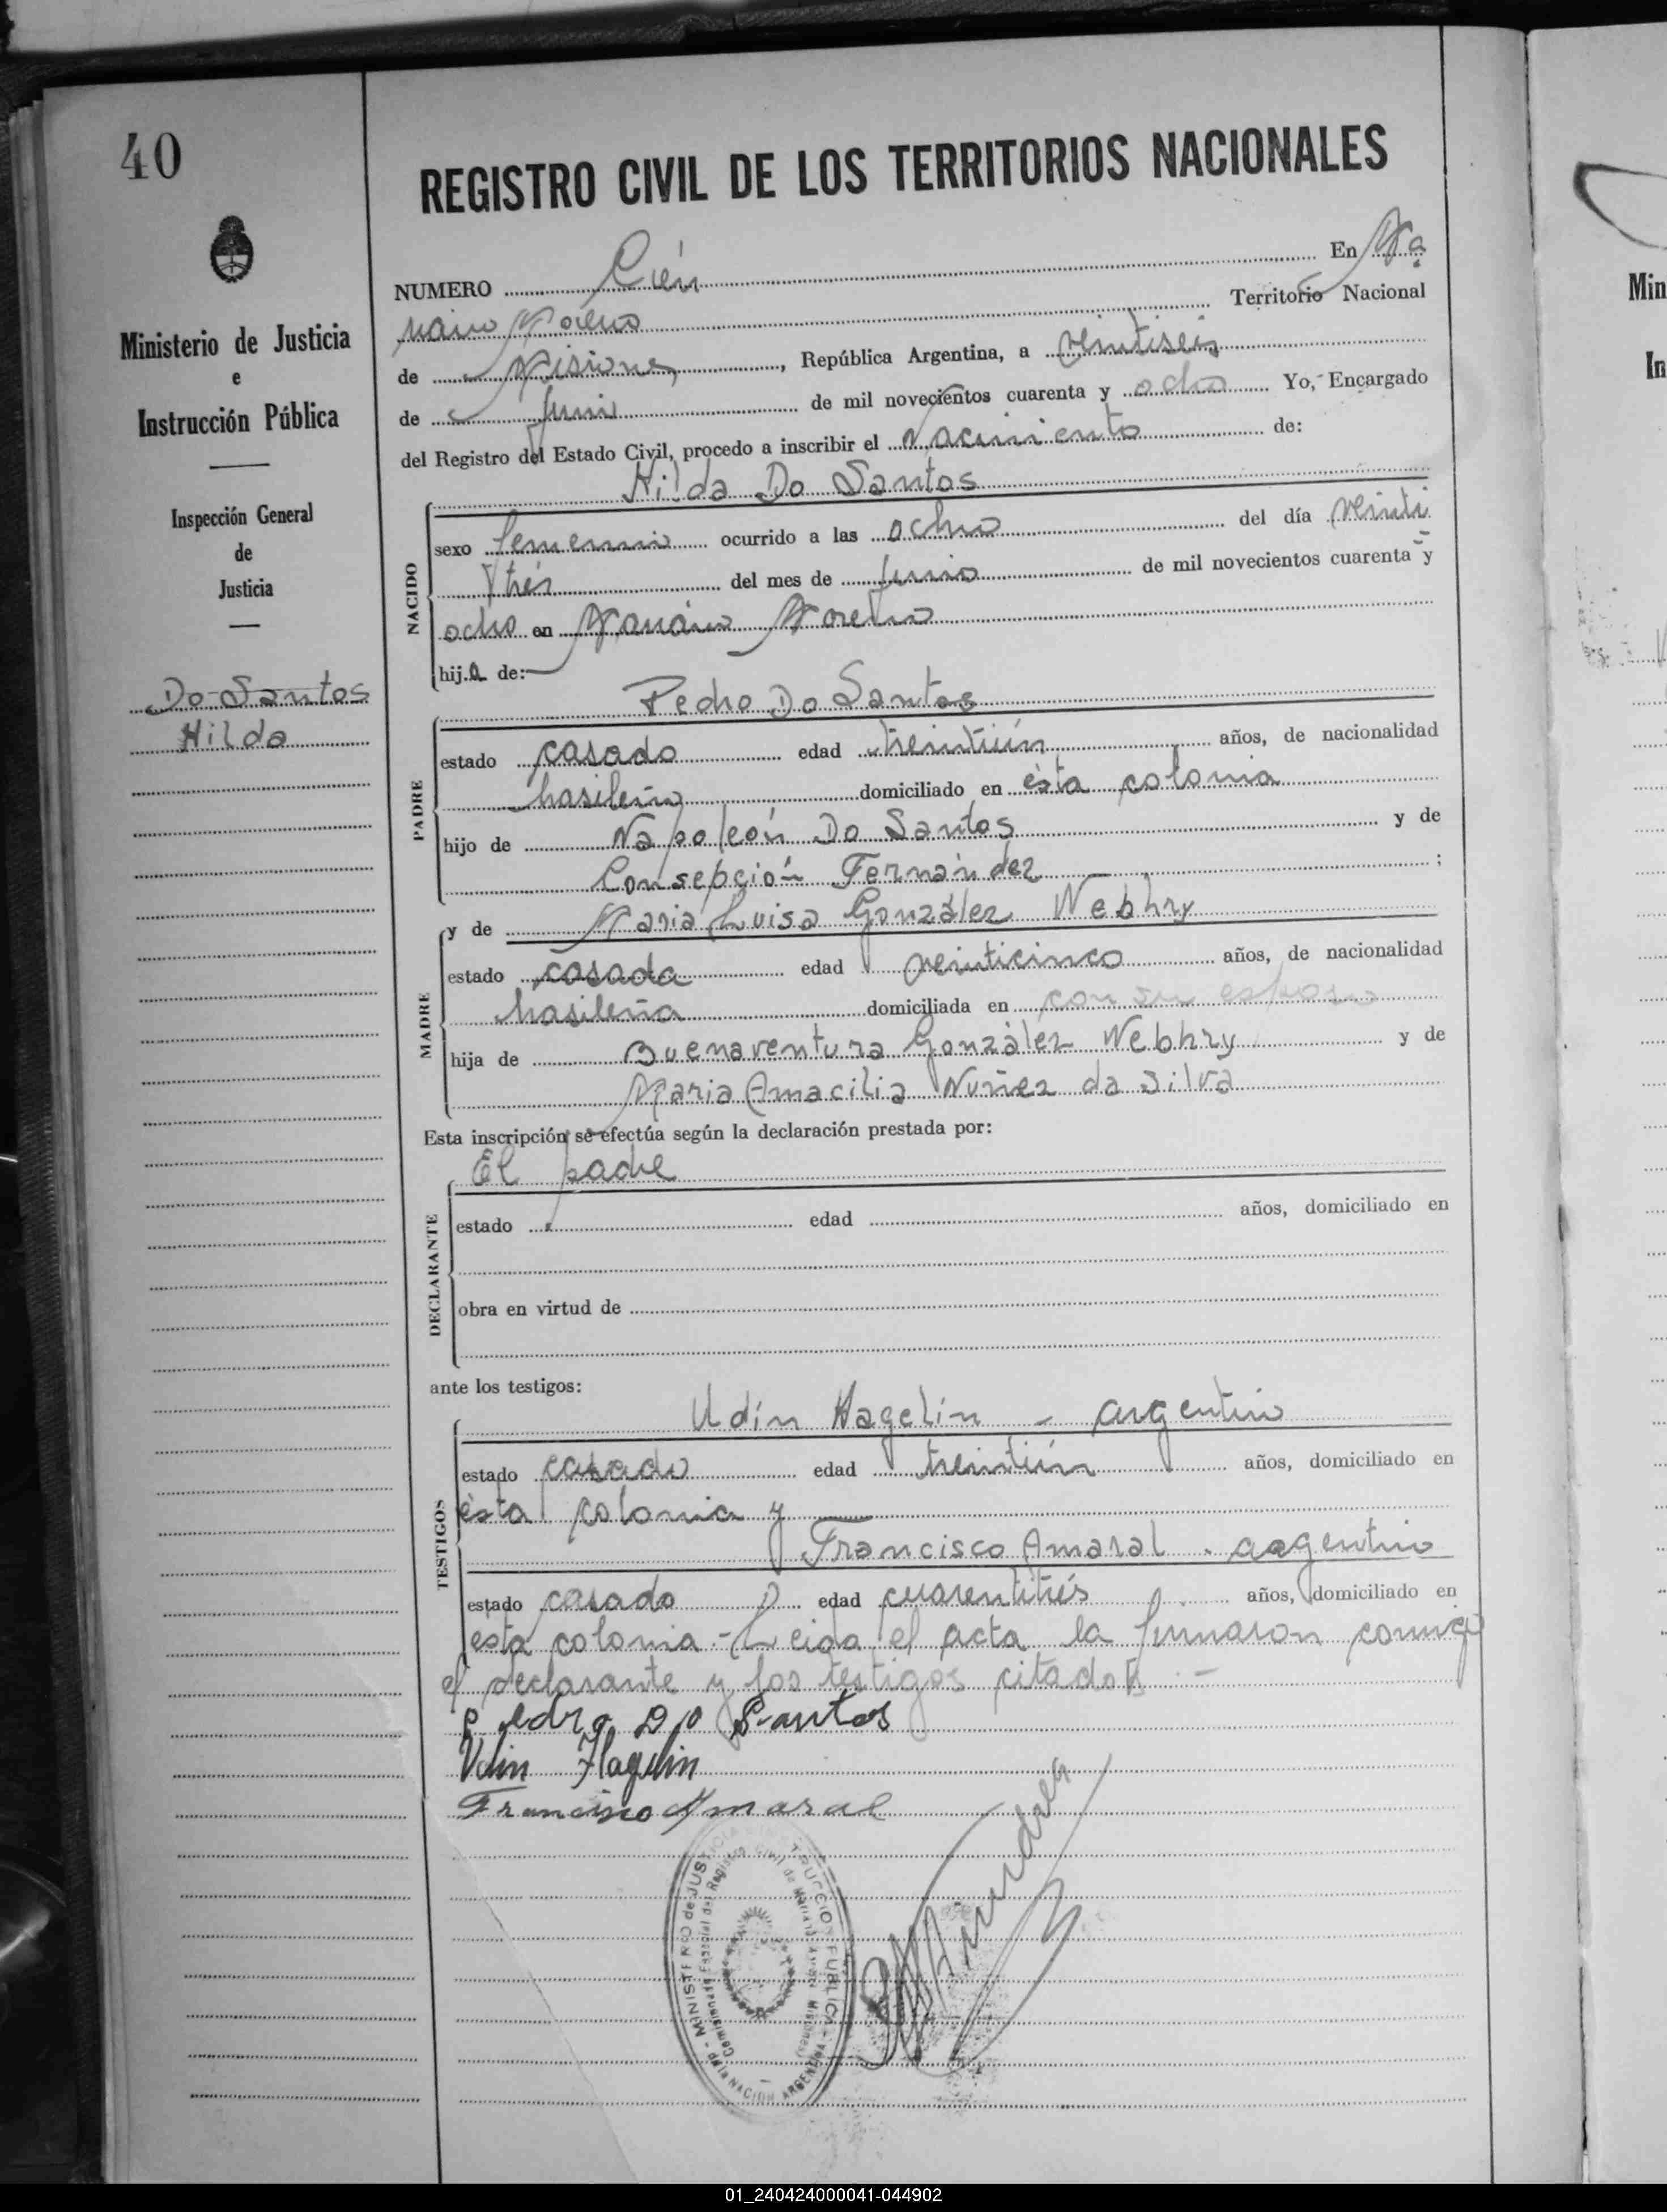 40
Ministerio de Justicia
e
Instrucción Pública
Inspección General
de
Justicia
Do Santos
Hilda
REGISTRO CIVIL DE LOS TERRITORIOS NACIONALES
NUMERO Cién En Ma
riano Moreno Territorio Nacional
de Misiones, República Argentina, a veintiseis
de Junio de mil novecientos cuarenta y ocho Yo, Encargado
del Registro del Estado Civil, procedo a inscribir el Nacimiento de:
NACIDO
Hilda Do Santos
sexo femenino ocurrido a las ocho del día veinti
trés del mes de Junio de mil novecientos cuarenta y
ocho en Mariano Moreno
hija de:
PADRE
Pedro Do Santos
estado casado edad treintiún años, de nacionalidad
brasileño domiciliado en ésta colonia
hijo de Napoleón Do Santos y de
Consepción Fernández ;
MADRE
y de Maria Luisa González Webhry
estado casada edad veinticinco años, de nacionalidad
brasileña domiciliada en con su esposo
hija de Buenaventura González Webhry y de
Maria Amacilia Nuñez da Silva
Esta inscripción se efectúa según la declaración prestada por:
DECLARANTE
El padre
estado edad años, domiciliado en
obra en virtud de
ante los testigos:
TESTIGOS
Udín Hagelín - argentino
estado casado edad treintiún años, domiciliado en
ésta colonia y
Francisco Amaral - argentino
estado casado edad cuarentitrés años, domiciliado en
esta colonia.- Leida el acta la firmaron conmigo
el declarante y los testigos citados.-
Pedro Do Santos
Udin Hagelin
Francisco Amaral
MINISTERIO de JUSTICIA INSTRUCCION PUBLICA
NACION ARGENTINA
01_240424000041-044902